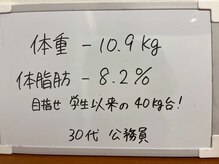 体重 - 10.9kg
体脂肪 - 8.2%
目指せ 学生以来の40kg台!
30代 公務員